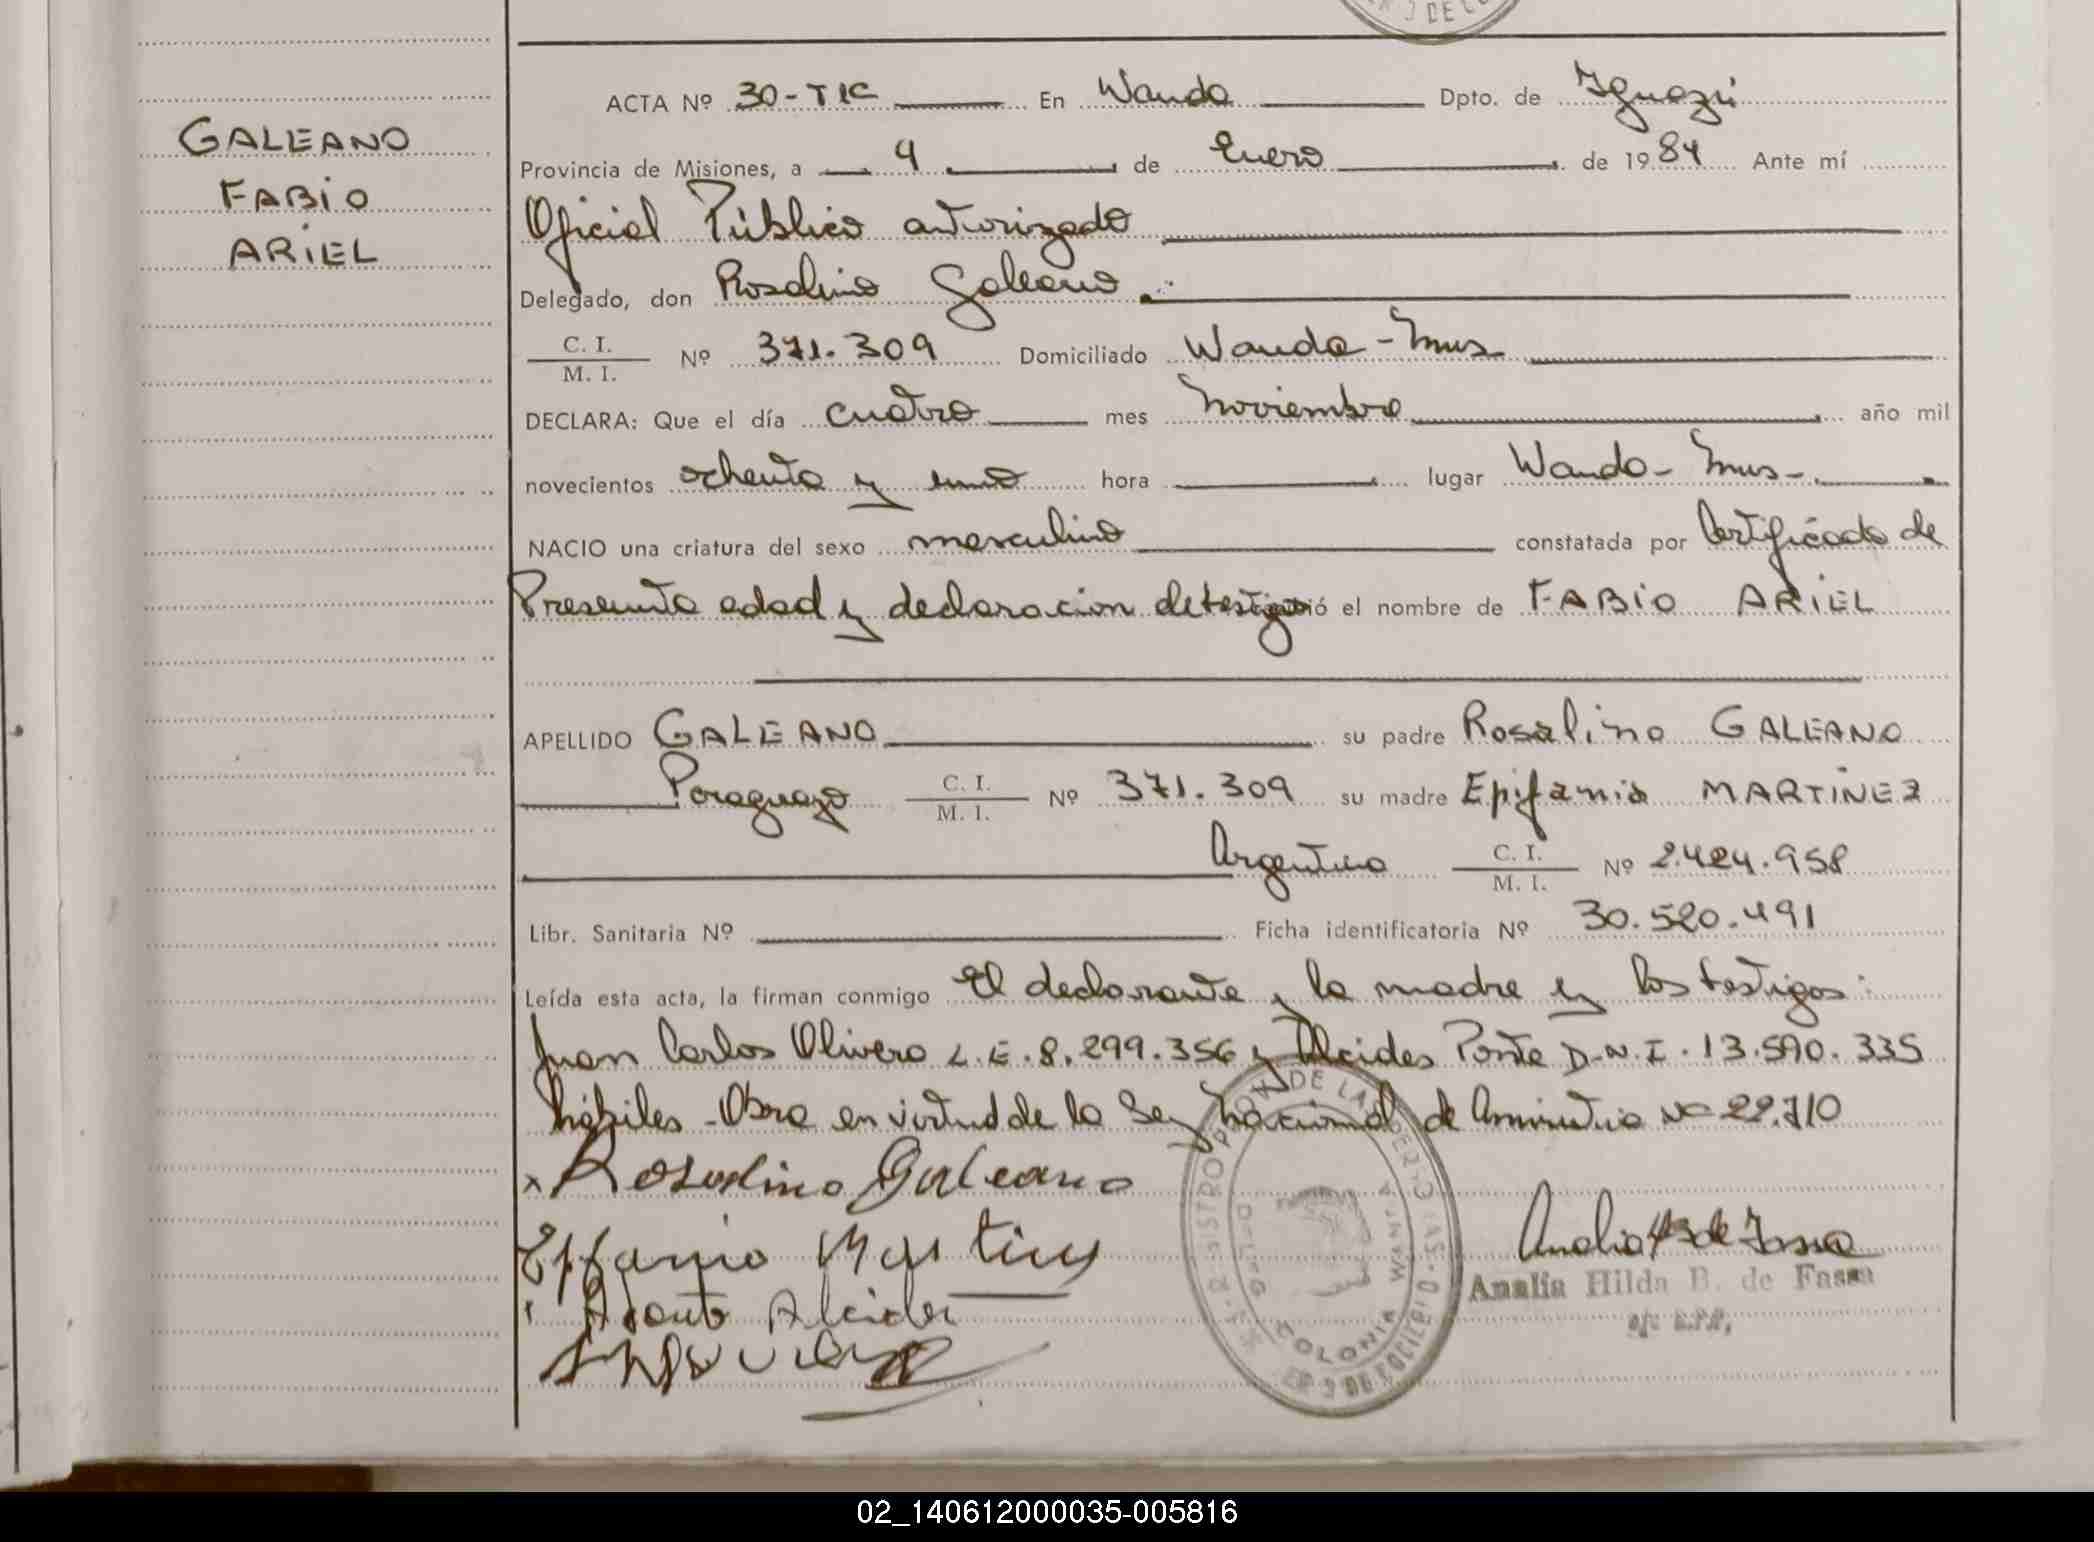 GALEANO
FABIO
ARIEL
ACTA Nº 30-TIC En Wanda Dpto. de Iguazú
Provincia de Misiones, a 4 de Enero de 1984 Ante mí
Oficial Público autorizado
Delegado, don Rosalino Galeano
C. I. / M. I. Nº 371.309 Domiciliado Wanda - Mnes
DECLARA: Que el día cuatro mes Noviembre año mil
novecientos ochenta y uno hora lugar Wanda - Mnes -
NACIO una criatura del sexo masculino constatada por Certificado de
Presunta edad y declaracion de testigos ió el nombre de FABIO ARIEL
APELLIDO GALEANO su padre Rosalino GALEANO
Paraguayo C. I. / M. I. Nº 371.309 su madre Epifania MARTINEZ
Argentina C. I. / M. I. Nº 2.424.958
Libr. Sanitaria Nº Ficha identificatoria Nº 30.520.491
Leída esta acta, la firman conmigo El declarante, la madre y los testigos:
Juan Carlos Olivera L.E. 8.299.356 y Alcides Ponte D.N.I. 13.590.335
hábiles - Obra en virtud de la Ley Nacional de Amnistia Nº 22.710
x Rosalino Galeano
Epifania Martinez
Alcides
COLONIA WANDA
Analia H B de Fassa
Analía Hilda B. de Fassa
02_140612000035-005816